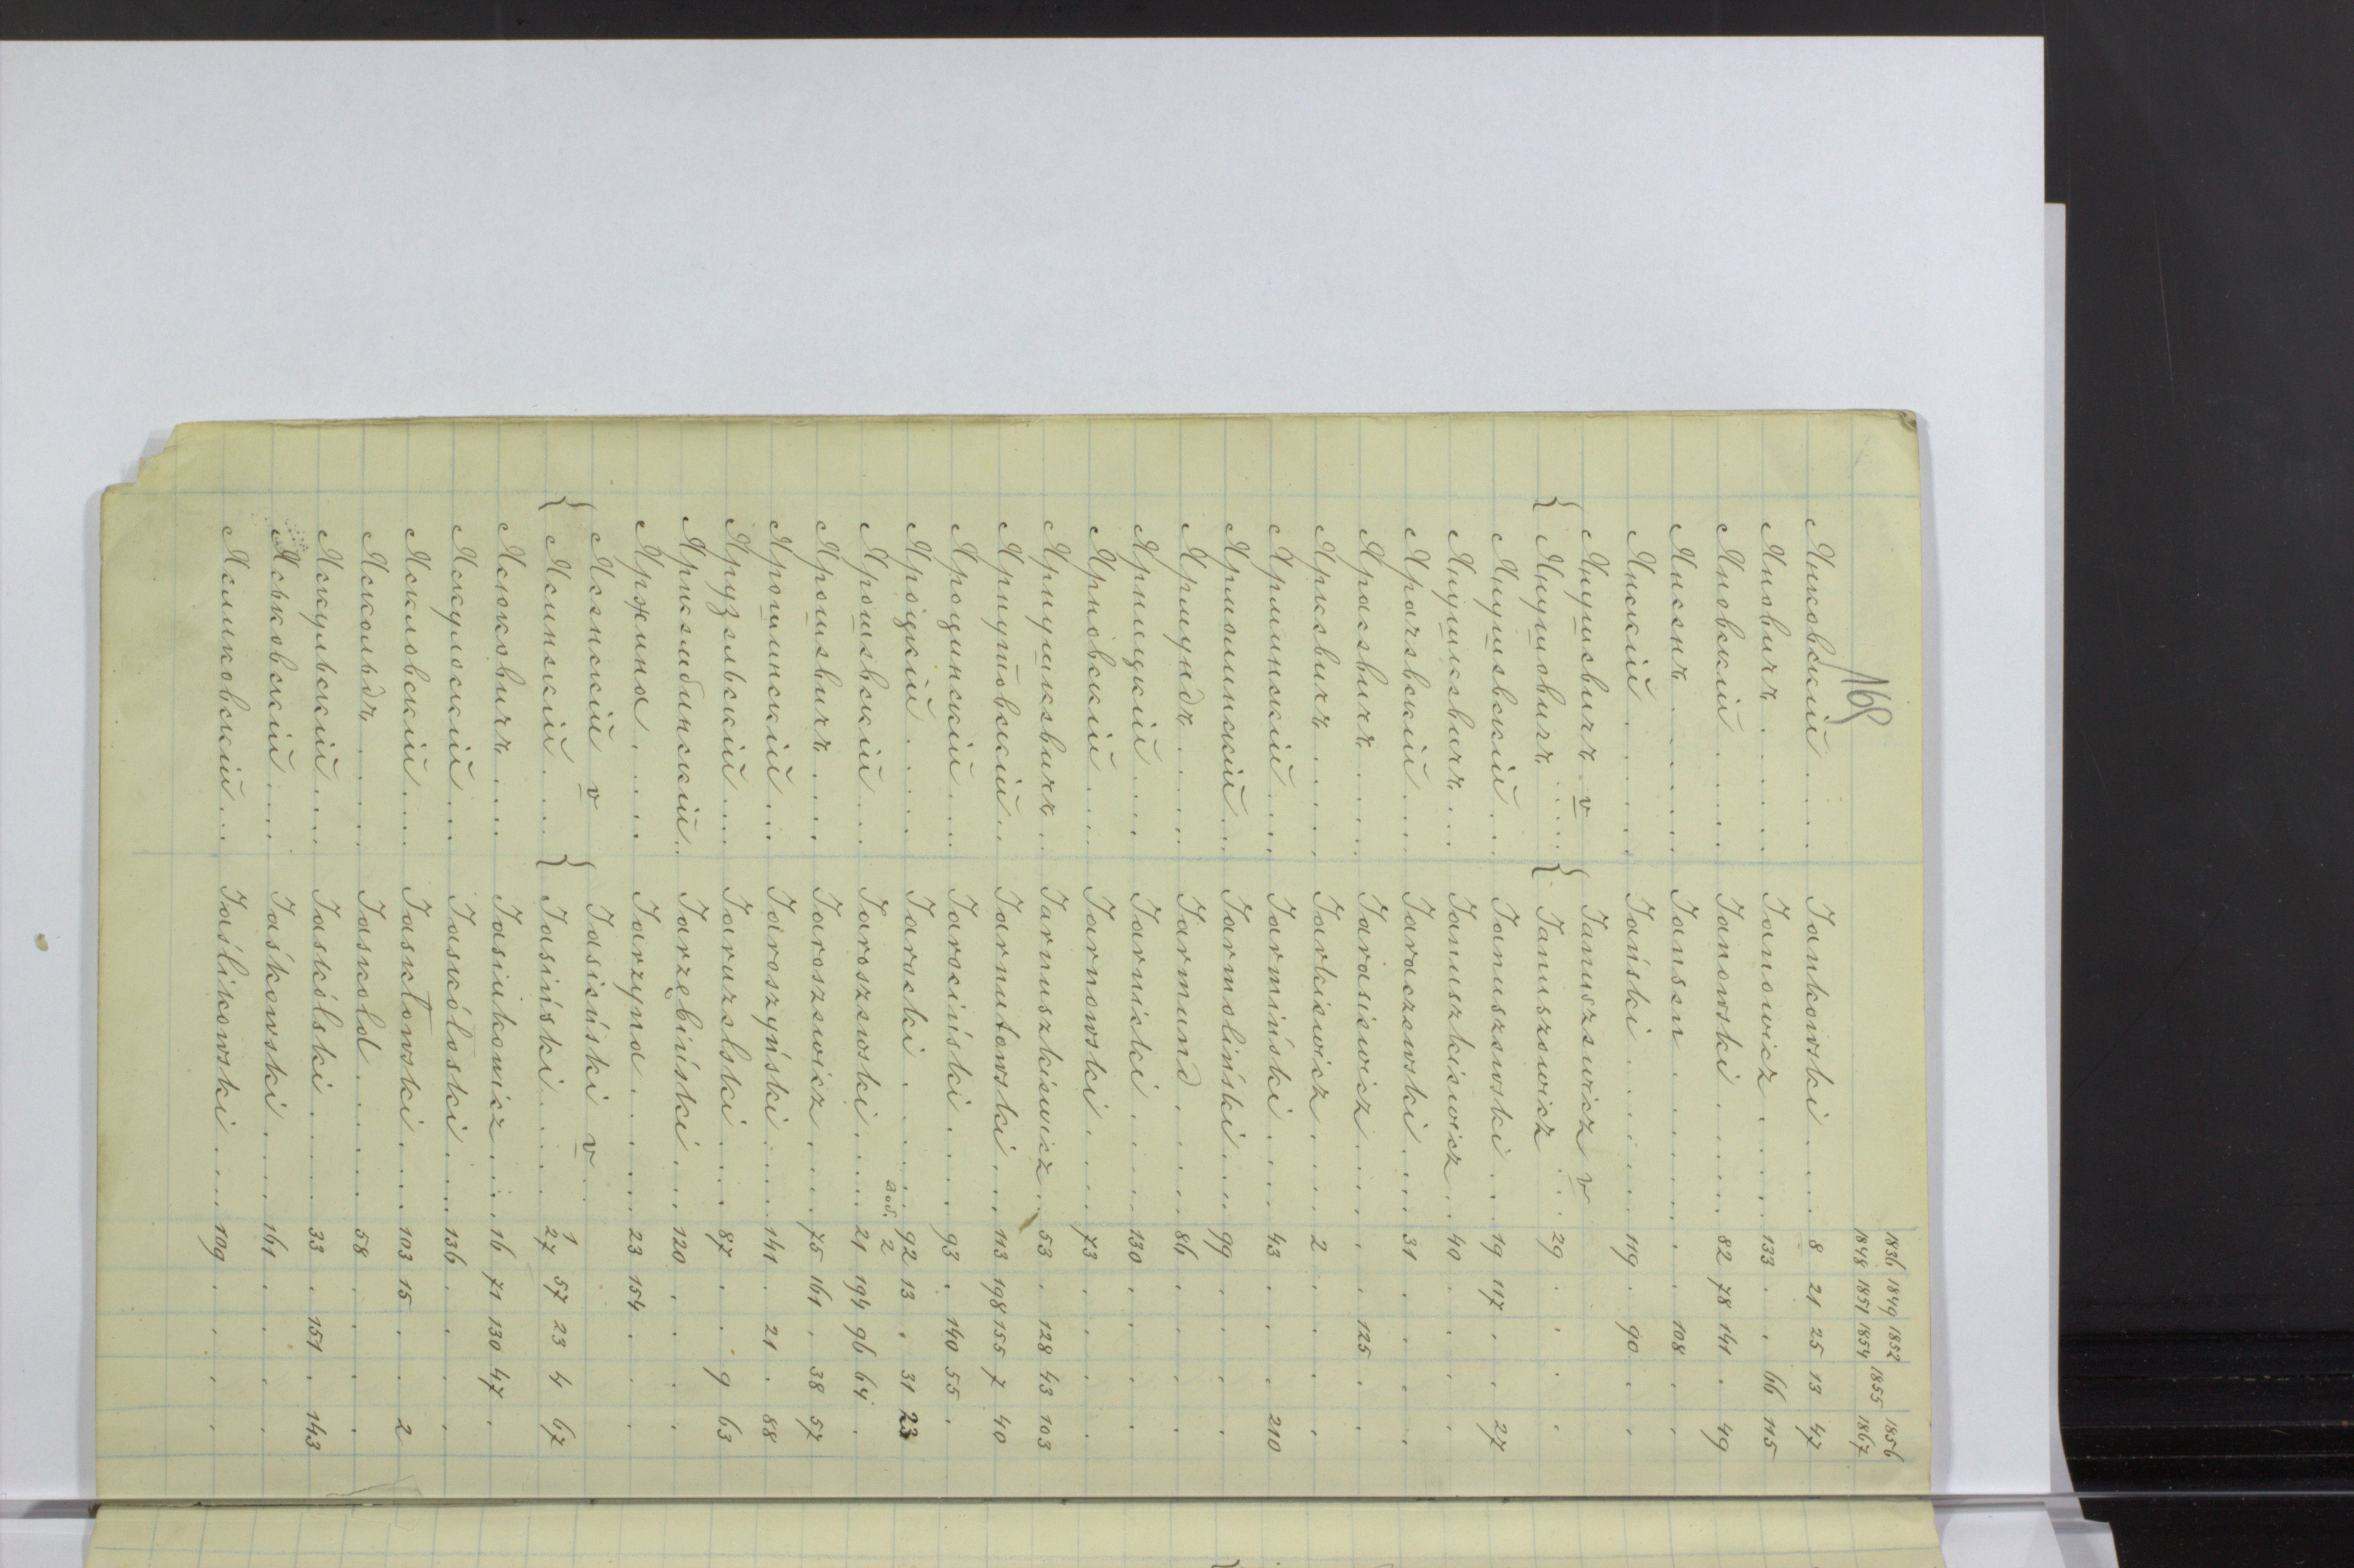 168
1836 1849 1852 1856
1848 1851 1854 1855 1867
Янковскій . . . . Jankowski . . . . 8 21 25 13 47
Яновичъ . . . . . Janowicz . . . . . 133 . . 66 115
Яновскій . . . . Janowski . . . . . 82 78 141 . 49
Янсенъ . . . . . Jansen . . . . . . . . 108 . .
Янскій . . . . . Jański . . . . . . 119 . 90 . .
Янушевичъ v Januszewicz v
{ Янушовичъ . . . . . { Januszowicz . . . 29 . . . .
Янушевскій . . Januszewski . . . 19 117 . . 27
Янушкевичъ . . . Januszkiewicz . . 40 . . . .
Ярачевскій . . . Jaraczewski . . . . 31 . . . .
Ярасевичъ . . . . Jarasiewicz . . . . . . 125 . .
Яркевичъ . . . . Jarkiewicz . . . . 2 . . . .
Ярминскій . . . Jarmiński . . . . 43 . . . 210
Ярмолинскій . . . Jarmoliński . . . . 99 . . . .
Ярмундъ . . . . Jarmund . . . . . 86 . . . .
Ярницкій . . . . Jarnicki . . . . . 130 . . . .
Ярновскій . . . Jarnowski . . . . 73 . . . .
Ярнушкевичъ . . Jarnuszkiewicz . . 53 . 128 43 103
Ярнутовскій . . Jarnutowski . . . 113 198 155 7 40
Яроцинскій . . . Jarociński . . . . 93 . 140 55 .
Яроцкій . . . . Jarocki . . . . . . 92 13 . 31 23
2
Ярошевскій . . . Jaroszewski . . . . 21 194 96 64 .
Ярошевичъ . . . . Jaroszewicz . . . . 75 161 . 38 57
Ярошинскій . . . Jaroszyński . . . . 141 . 21 . 88
Ярузельскій . . . Jaruzelski . . . . 87 . . 9 63
Яржембинскій . . Jarzębiński . . . 120 . . . .
Яржина . . . . Jarzyna . . . . . . 23 154 . . .
Ясенскій v Jasieński v . .
{ Ясинскій . . . { Jasiński . . . . 27 57 23 4 67
Ясюковичъ . . . . Jasiukowicz . . . . 16 71 130 47 .
Яскулоскій . . . Jaskółoski . . . . 136 . . . .
Яскловскій . . . Jaskłowski . . . . 103 15 . . 2
Яскольдъ . . . . . Jaskold . . . . . . 58 . . . .
Яскульскій . . . Jaskólski . . . . . . 33 . 151 . 143
Яськовскій . . . Jaśkowski . . . . . 161 . . . .
Ясликовскій . . . Jaślikowski . . . . 109 . . . .